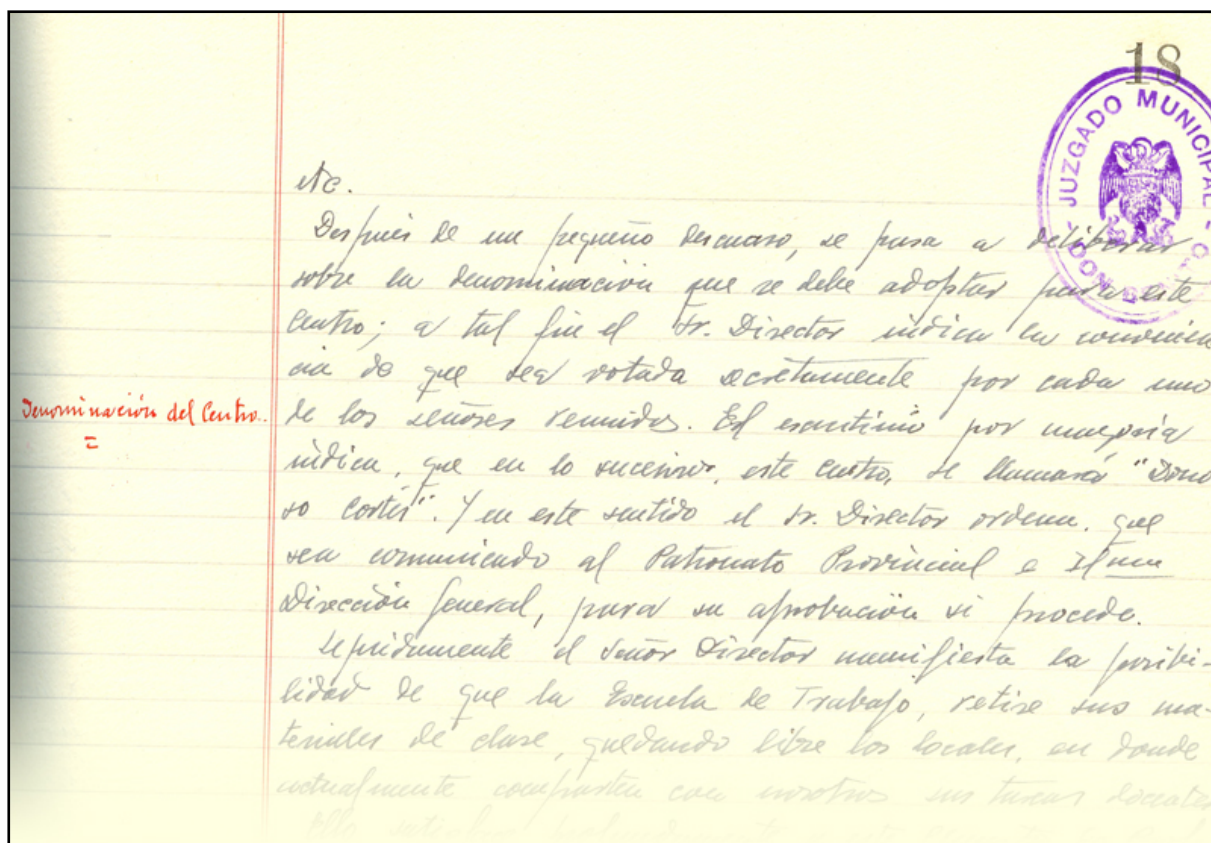 18
JUZGADO MUNICIPAL
DON
etc.
Después de un pequeño descanso, se pasa a deliberar
sobre la denominación que se debe adoptar para este
Centro; a tal fin el Sr. Director indica la convenien
cia de que sea votada secretamente por cada uno
Denominación del Centro.
de los señores reunidos. El escrutinio por mayoría
=
indica, que en lo sucesivo, este Centro, se llamará "Dono
so Cortés". Y en este sentido el Sr. Director ordena, que
sea comunicado al Patronato Provincial e Ilma
Dirección General, para su aprobación si procede.
Seguidamente el Señor Director manifiesta la posibi-
lidad de que la Escuela de Trabajo, retire sus ma-
teriales de clase, quedando libre los locales, en donde
actualmente comparten con nosotros sus tareas docentes